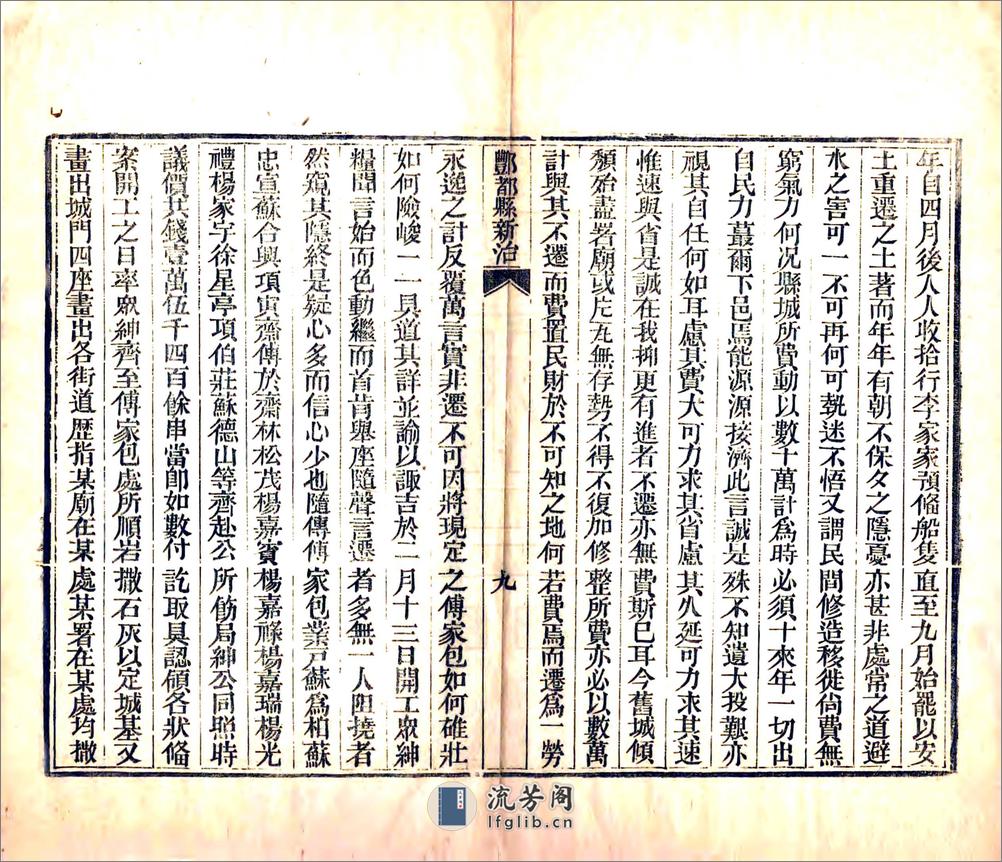 年自四月後人人收拾行李家家預備船隻直至九月始罷以安
土重遷之土著而年年有朝不保夕之隱憂亦甚非處常之道避
水之害可一不可再何可執迷不悟又謂民間修造移徙尙費無
窮氣力何况縣城所費動以數十萬計爲時必須十來年一切出
自民力蕞爾下邑焉能源源接濟此言誠是殊不知遺大投艱亦
視其自任何如耳慮其費大可力求其省慮其久延可力求其速
惟速與省是誠在我抑更有進者不遷亦無費斯已耳今舊城傾
頽殆盡署廟或片瓦無存勢不得不復加修整所費亦必以數萬
計與其不遷而費置民財於不可知之地何若費焉而遷爲一勞
酆都縣新治
九
永逸之計反覆萬言實非遷不可因將現定之傅家包如何雄壯
如何險峻一一具道其詳並諭以諏吉於二月十三日開工眾紳
糧聞言始而色動繼而首肯舉座隨聲言遷者多無一人阻撓者
然窺其隱終是疑心多而信心少也隨傳傅家包業戸蘇爲柏蘇
忠宣蘇合興項寅齋傅於齋林松茂楊嘉賓楊嘉祿楊嘉瑞楊光
禮楊家字徐星亭項伯莊蘇德山等齊赴公所飭局紳公同照時
議價共錢壹萬伍千四百餘串當卽如數付訖取具認領各狀備
案開工之日率眾紳齊至傅家包處所順岩撒石灰以定城基又
畫出城門四座畫出各街道歷指某廟在某處某署在某處均撒
流芳阁
lfglib.cn